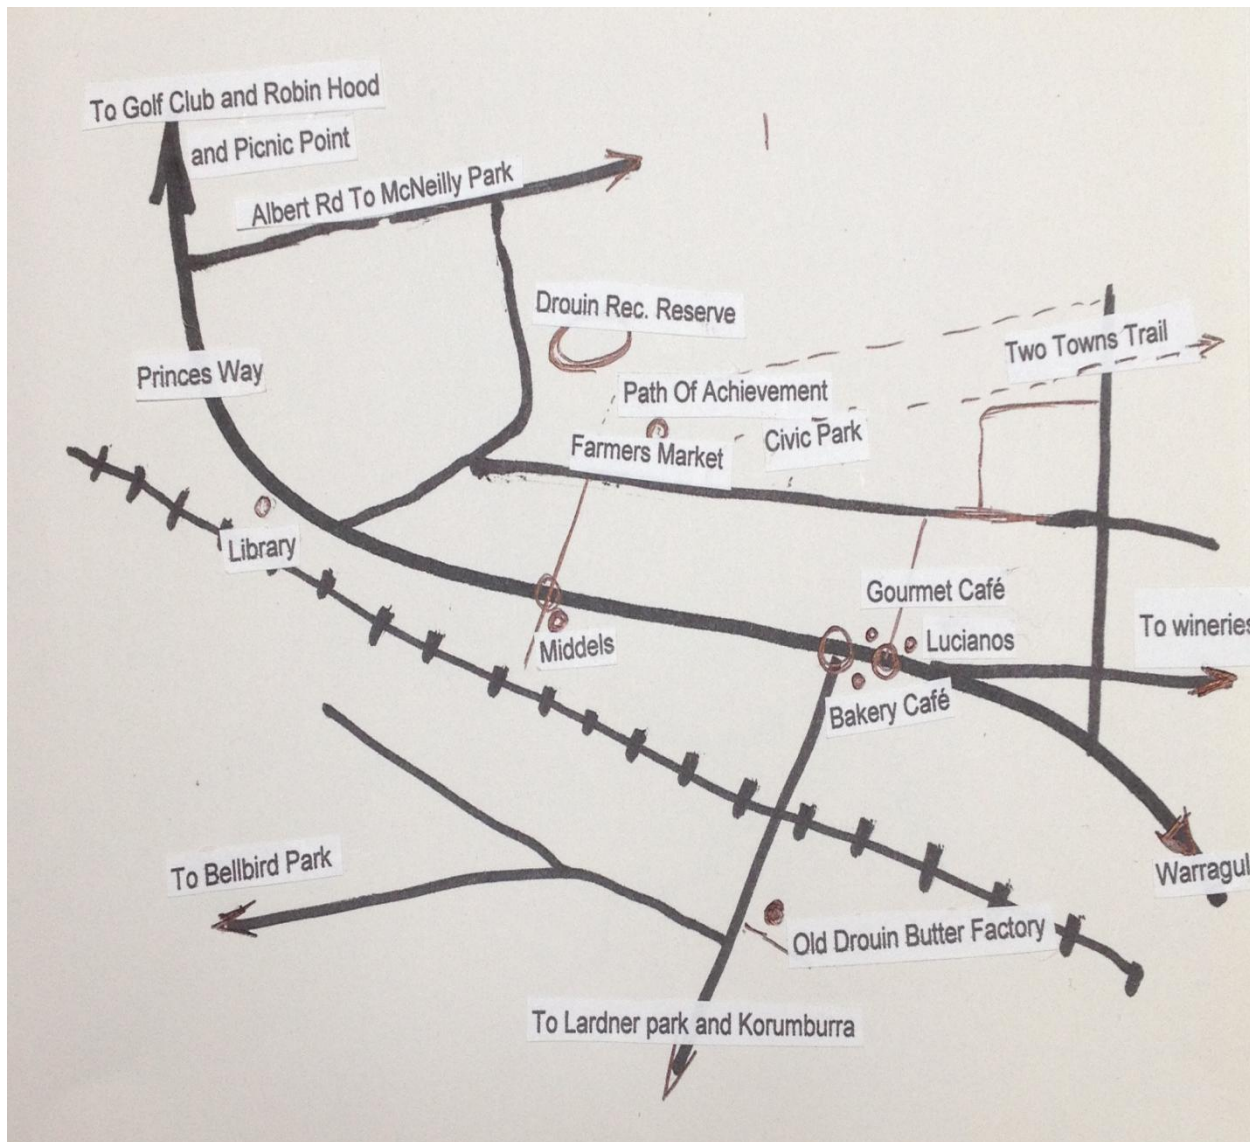 To Golf Club and Robin Hood
and Picnic Point
Albert Rd To McNeilly Park
Drouin Rec. Reserve
Two Towns Trail
Princes Way
Path Of Achievement
Civic Park
Farmers Market
Library
Gourmet Café
To wineries
Lucianos
Middels
Bakery Café
To Bellbird Park
Warragul
Old Drouin Butter Factory
To Lardner park and Korumburra